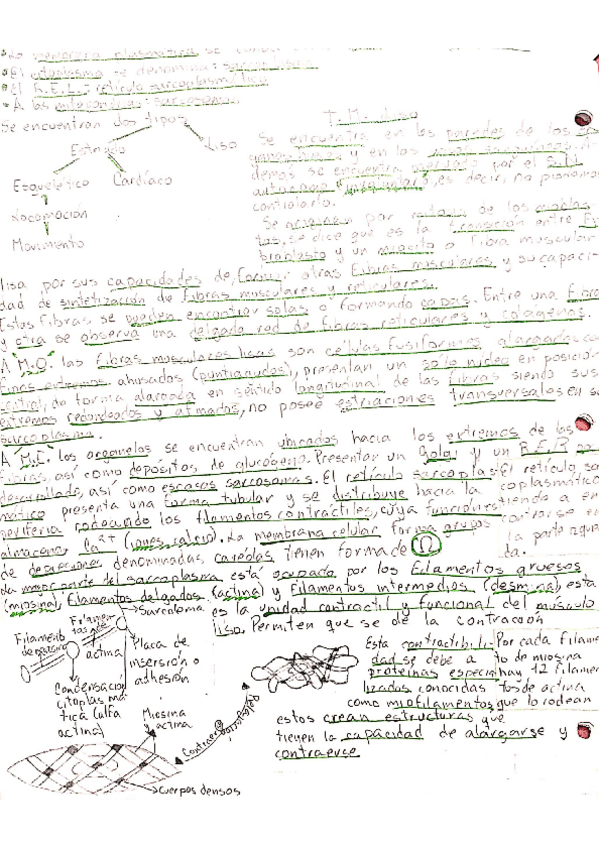 • La membrana plasmática se
• El citoplasma se denomina: sarcoplasma.
• El R.E.L.: retículo sarcoplasmático
• A las mitocondrias: sarcosomas.
Se encuentran dos tipos:
Estriado
Liso
Esquelético
Cardíaco
Locomoción
Movimiento
T. M. Liso
Se encuentra en las paredes de los
y en los vasos sanguíneos. A-
demás se encuentra por el S.N.
autónomo es decir, no podemos
controlarlo.
Se por de los
tos, se dice que es la transición entre
broblasto y un miocito o fibra muscular
lisa por sus capacidades de, formar otras fibras musculares, y su capaci-
dad de sintetización de fibras musculares y reticulares.
Estas fibras, se pueden encontrar solas o formando capas. Entre una fibra
y otra se observa una delgada red de fibras reticulares y colágenas.
A M.O. las fibras musculares lisas son células fusiformes alargadas con
finos extremos ahusados (puntiagudos), presentan un solo núcleo en posición
central, de forma alargada en sentido longitudinal de las fibras siendo sus
extremos redondeados y afinados, no posee estriaciones transversales en su
sarcoplasma.
A M.E. los organelos se encuentran ubicados hacia los extremos de las
fibras, así como depósitos de glucógeno. Presentan un Golgi y un R.E.R. no
desarrollado, así como escasos sarcosomas. El retículo sarcoplas-
mático presenta una forma tubular y se distribuye hacia la
periferia rodeando los filamentos contráctiles, cuya función es
almacenar Ca²⁺ (iones calcio). La membrana celular forma grupos
de depresiones denominadas caveolas, tienen forma de Ω
El retículo, sar
coplasmático
tiende a en
contrarse en
la parte
da.
La mayor parte del sarcoplasma está ocupado por los filamentos gruesos
(miosina), filamentos delgados (actina) y filamentos intermedios (desmina), esta
es la unidad contráctil y funcional del músculo
liso. Permiten que se dé la contracción
Sarcolema
Filamento
de
Filamen
tos de
actina
Placa de
inserción o
adhesión
Condensación
citoplasmá
tica (alfa
actina)
Miosina
y actina
Contracción
Relajación
Cuerpos densos
Esta contractibili-
dad se debe a
proteínas especia
lizadas conocidas
como miofilamentos
estos crean estructuras que
tienen la capacidad de alargarse y
contraerse
Por cada filamen
to de miosina
hay 12 filamen
tos de actina
que lo rodean